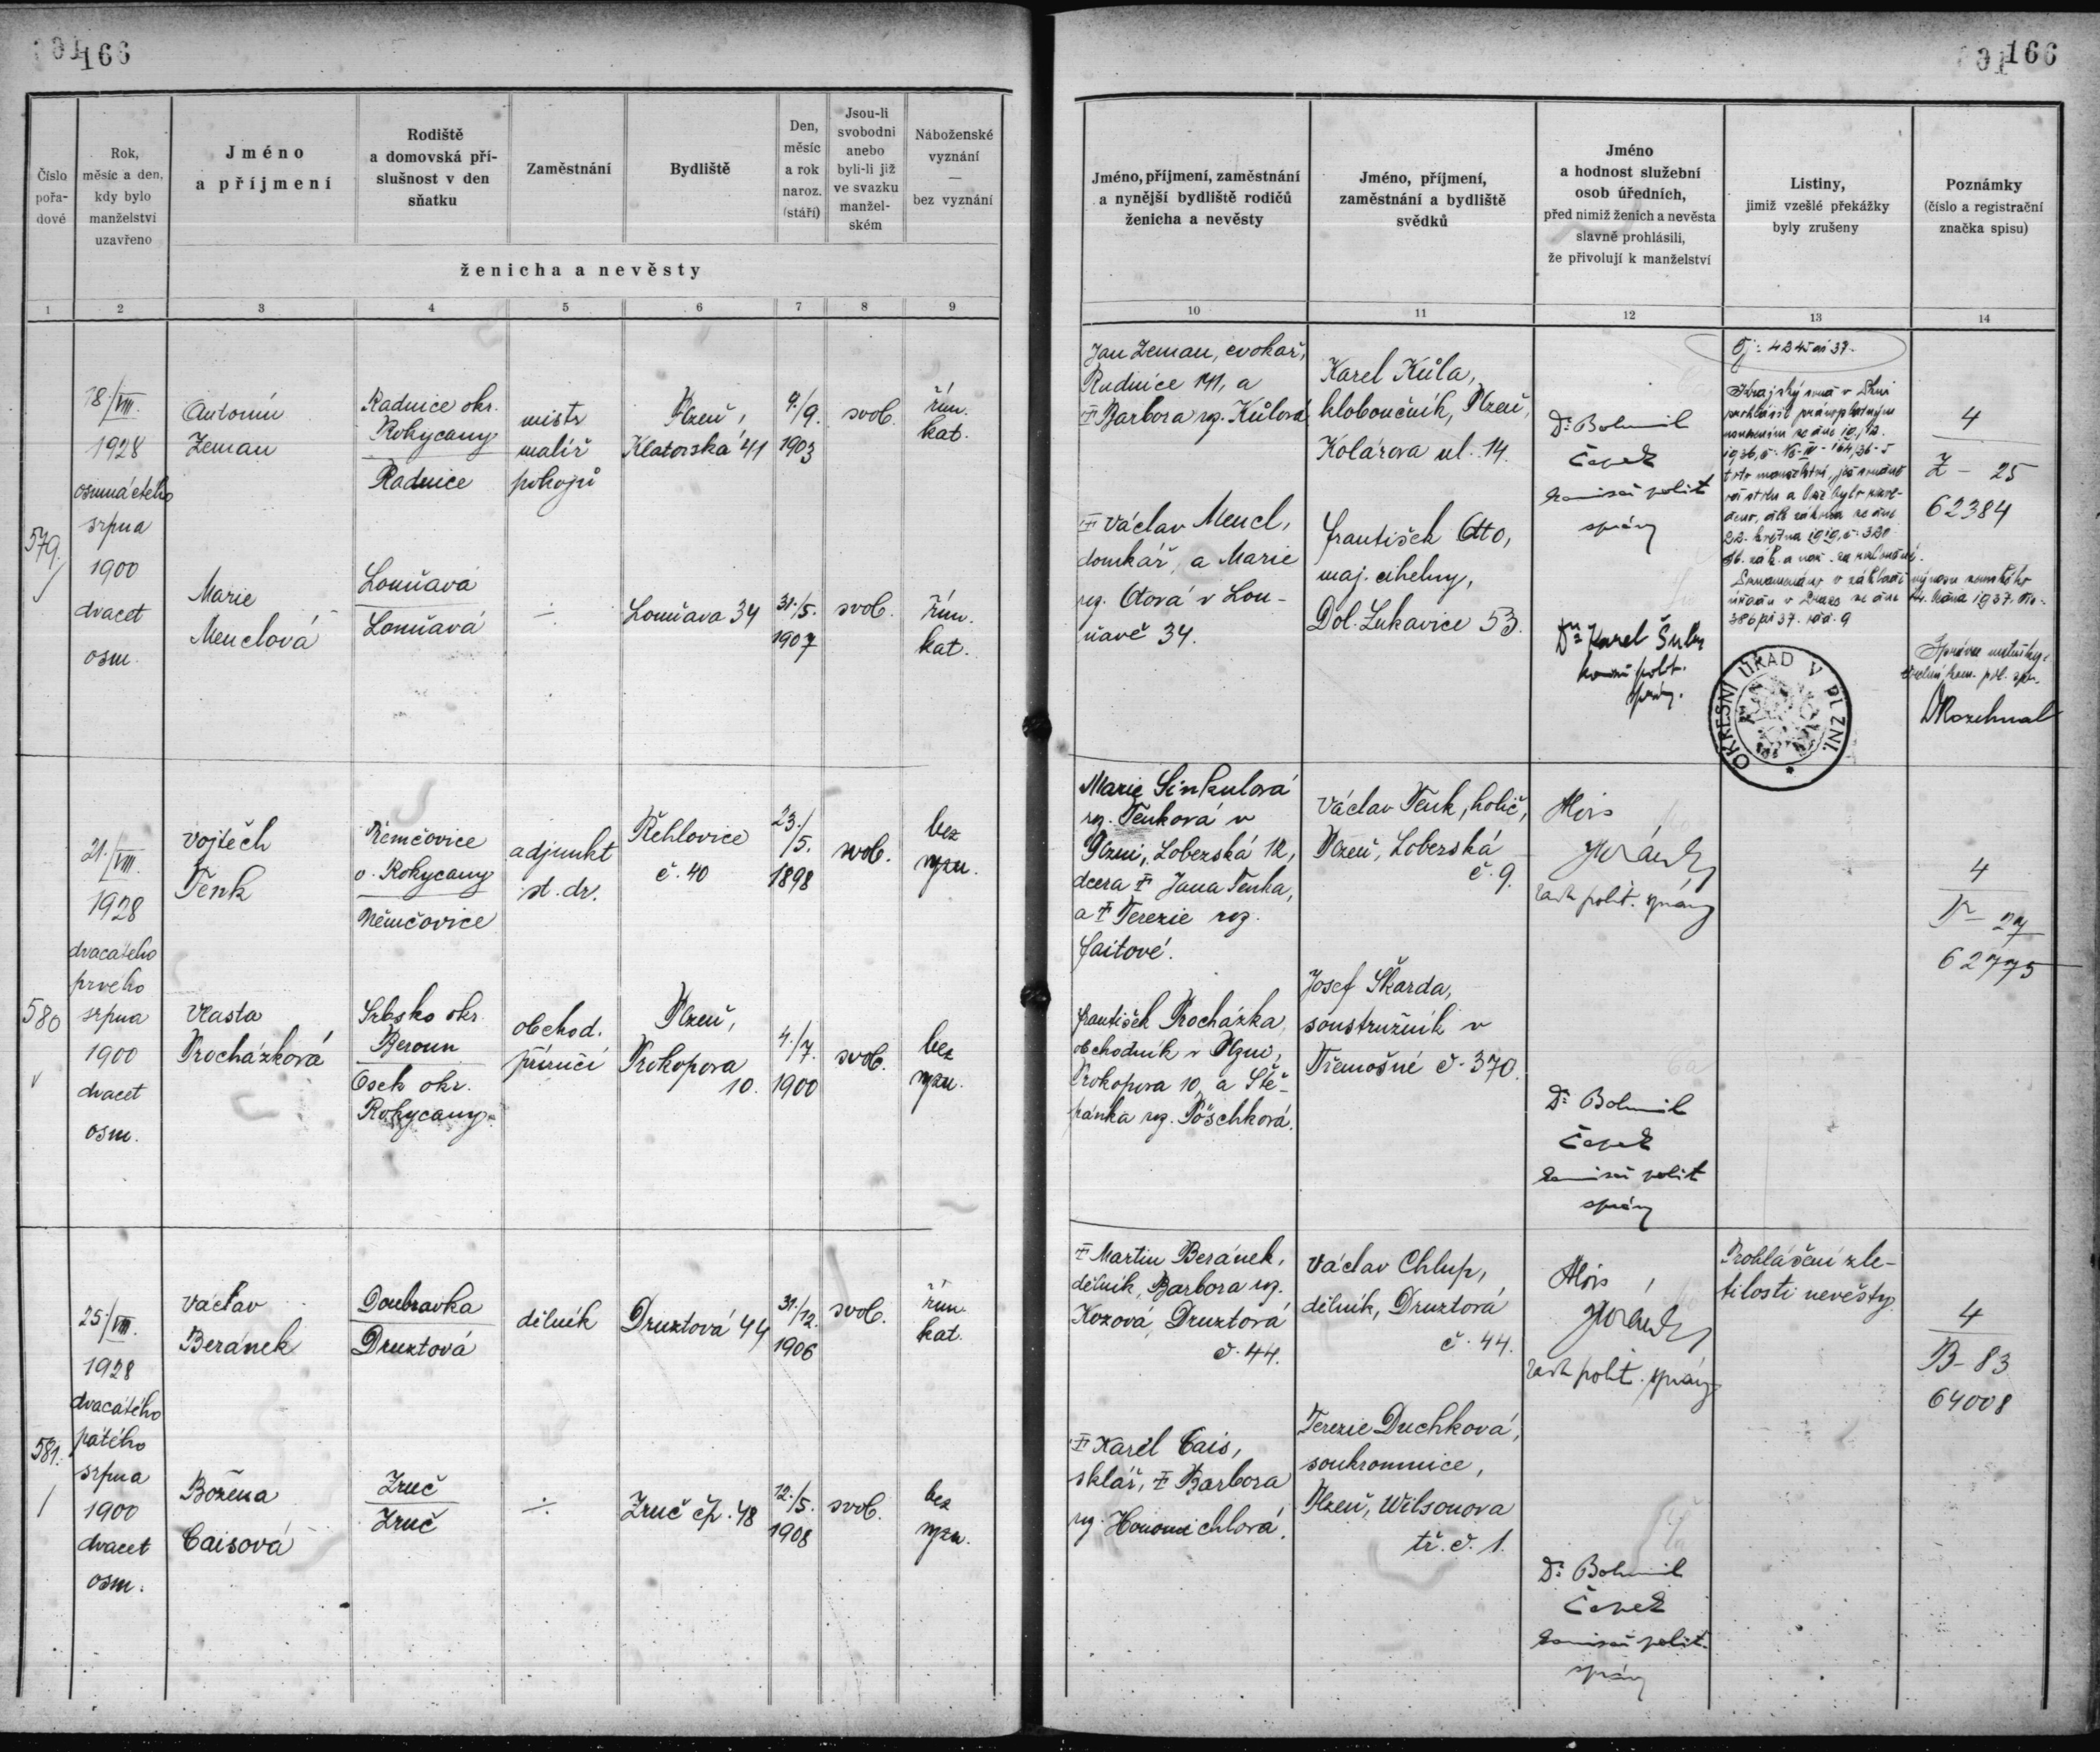 166
166
Číslo pořadové
Rok, měsíc a den, kdy bylo manželství uzavřeno
Jméno a příjmení
Rodiště a domovská příslušnost v den sňatku
Zaměstnání
Bydliště
Den, měsíc a rok naroz. (stáří)
Jsou-li svobodni anebo byli-li již ve svazku manželském
Náboženské vyznání — bez vyznání
ženicha a nevěsty
1 2 3 4 5 6 7 8 9
Jméno, příjmení, zaměstnání a nynější bydliště rodičů ženicha a nevěsty
Jméno, příjmení, zaměstnání a bydliště svědků
Jméno a hodnost služební osob úředních, před nimiž ženich a nevěsta slavně prohlásili, že přivolují k manželství
Listiny, jimiž vzešlé překážky byly zrušeny
Poznámky (číslo a registrační značka spisu)
10 11 12 13 14
579.
18./VIII.
1928
osmnáctého
srpna
1900
dvacet
osm.
Antonín
Zeman
Radnice okr.
Rokycany
Radnice
mistr
malíř
pokojů
Plzeň,
Klatovská 41
9./9.
1903
svob.
řím.
kat.
Marie
Menclová
Louňavá
Louňavá
Louňava 34
31./5.
1907
svob.
řím.
kat.
Jan Zeman, cvokař,
Radnice 141, a
Barbora roz. Kůlová
Václav Mencl,
domkář, a Marie
roz. Otová v Lou-
ňavě 34.
Karel Kůla,
kloboučník, Plzeň,
Kolárova ul. 14.
František Otto,
maj. cihelny,
Dol. Lukavice 53.
Dr. Bohumil
Čapek
komisař polit.
správy
Dr. Karel
polit.
správy.
Krajský soud v
prohlásil
1936,
toto manželství,
22. května 1919, č. 320
Sb. zák. a nař. za rozloučené.
OKRESNÍ ÚŘAD V PLZNI.
4
Z - 25
62384
Správce matriky:
580
21./VIII.
1928
dvacátého
prvého
srpna
1900
dvacet
osm.
Vojtěch
Tenk
Němčovice
o. Rokycany
Němčovice
adjunkt
st. dr.
Řehlovice
č. 40
23./
5.
1898
svob.
bez
vyzn.
Vlasta
Procházková
Srbsko okr.
Beroun
Osek okr.
Rokycany.
obchod.
příručí
Plzeň,
Prokopova
10.
4./7.
1900
svob.
bez
vyzn.
Marie Sinkulová
roz. Tenková v
Plzni, Loberská 12,
dcera Jana Tenka,
a Terezie roz.
Faitové.
František Procházka,
obchodník v Plzni,
Prokopova 10, a Ště-
pánka roz. Pöschková.
Václav Tenk, holič,
Plzeň, Loberská
č. 9.
Josef Škarda,
soustružník v
Třemošné č. 370.
Alois
rada polit. správy
Dr. Bohumil
Čapek
komisař polit.
správy
4
T - 27
62775
581.
25./VIII.
1928
dvacátého
pátého
srpna
1900
dvacet
osm.
Václav
Beránek
Doubravka
Druztová
dělník
Druztová 44
31./12.
1906
svob.
řím.
kat.
Božena
Caisová
Zruč
Zruč
Zruč čp. 48
12./5.
1908
svob.
bez
vyzn.
Martin Beránek,
dělník, Barbora roz.
Kozová, Druztová
č. 44.
Karel Cais,
sklář, Barbora
roz. Honomichlová.
Václav Chlup,
dělník, Druztová
č. 44.
Terezie Duchková,
soukromnice,
Plzeň, Wilsonova
tř. č. 1.
Alois
rada polit. správy
Dr. Bohumil
Čapek
komisař polit.
správy
Prohlášení zle-
tilosti nevěsty.
4
B - 83
64008